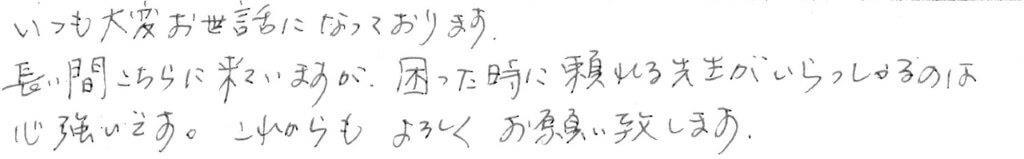 いつも大変お世話になっております.
長い間こちらに来ていますが、困った時に頼れる先生がいらっしゃるのは
心強いです。これからも よろしく お願い致します.